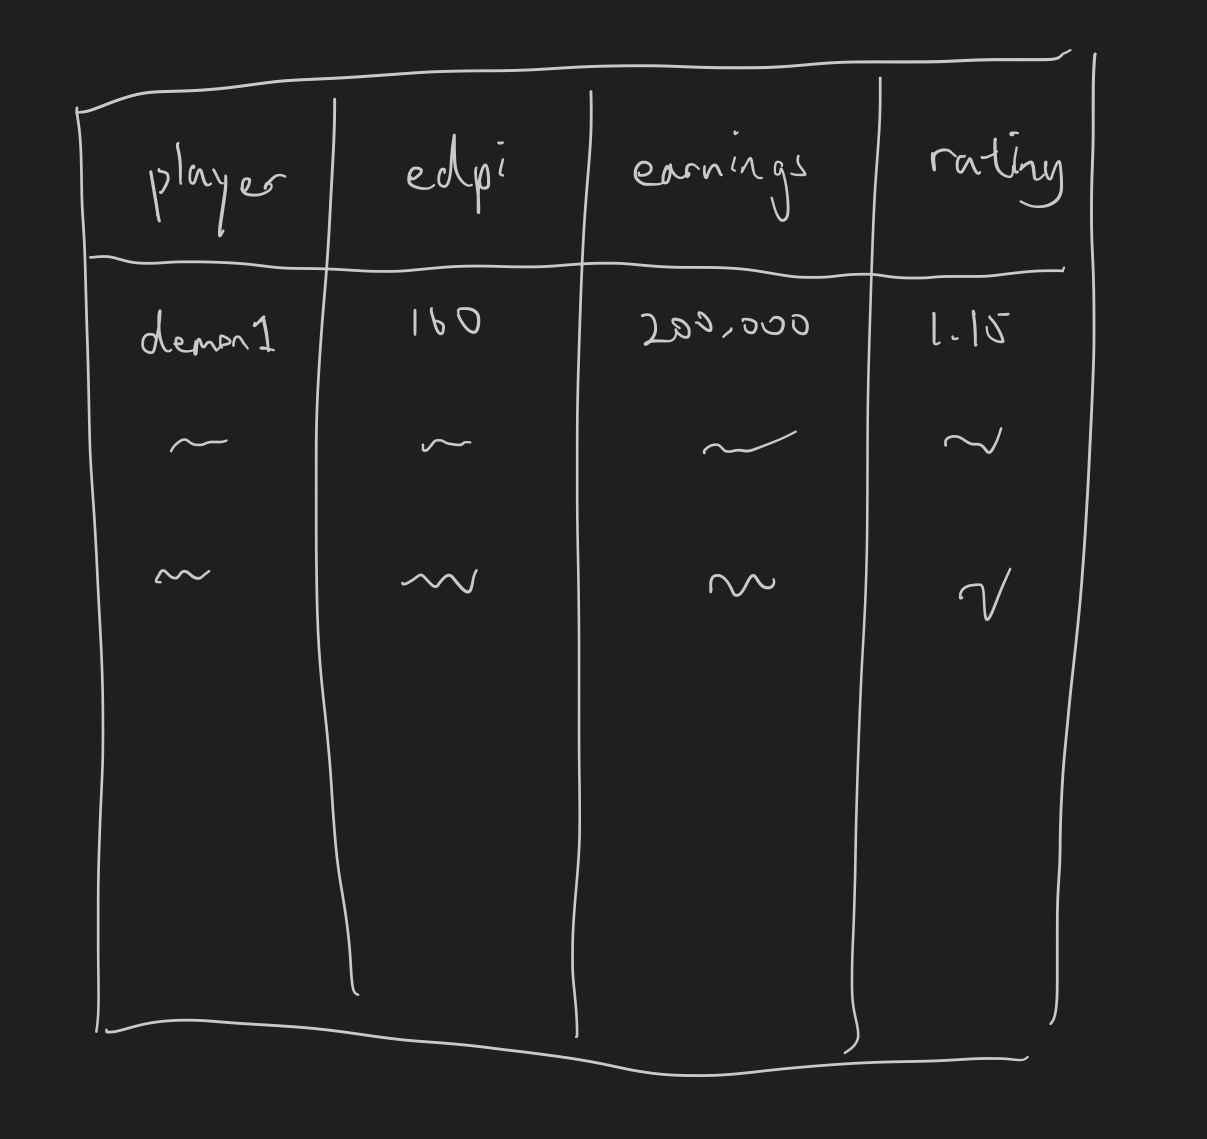 player edpi earnings rating
demon1 160 200,000 1.15